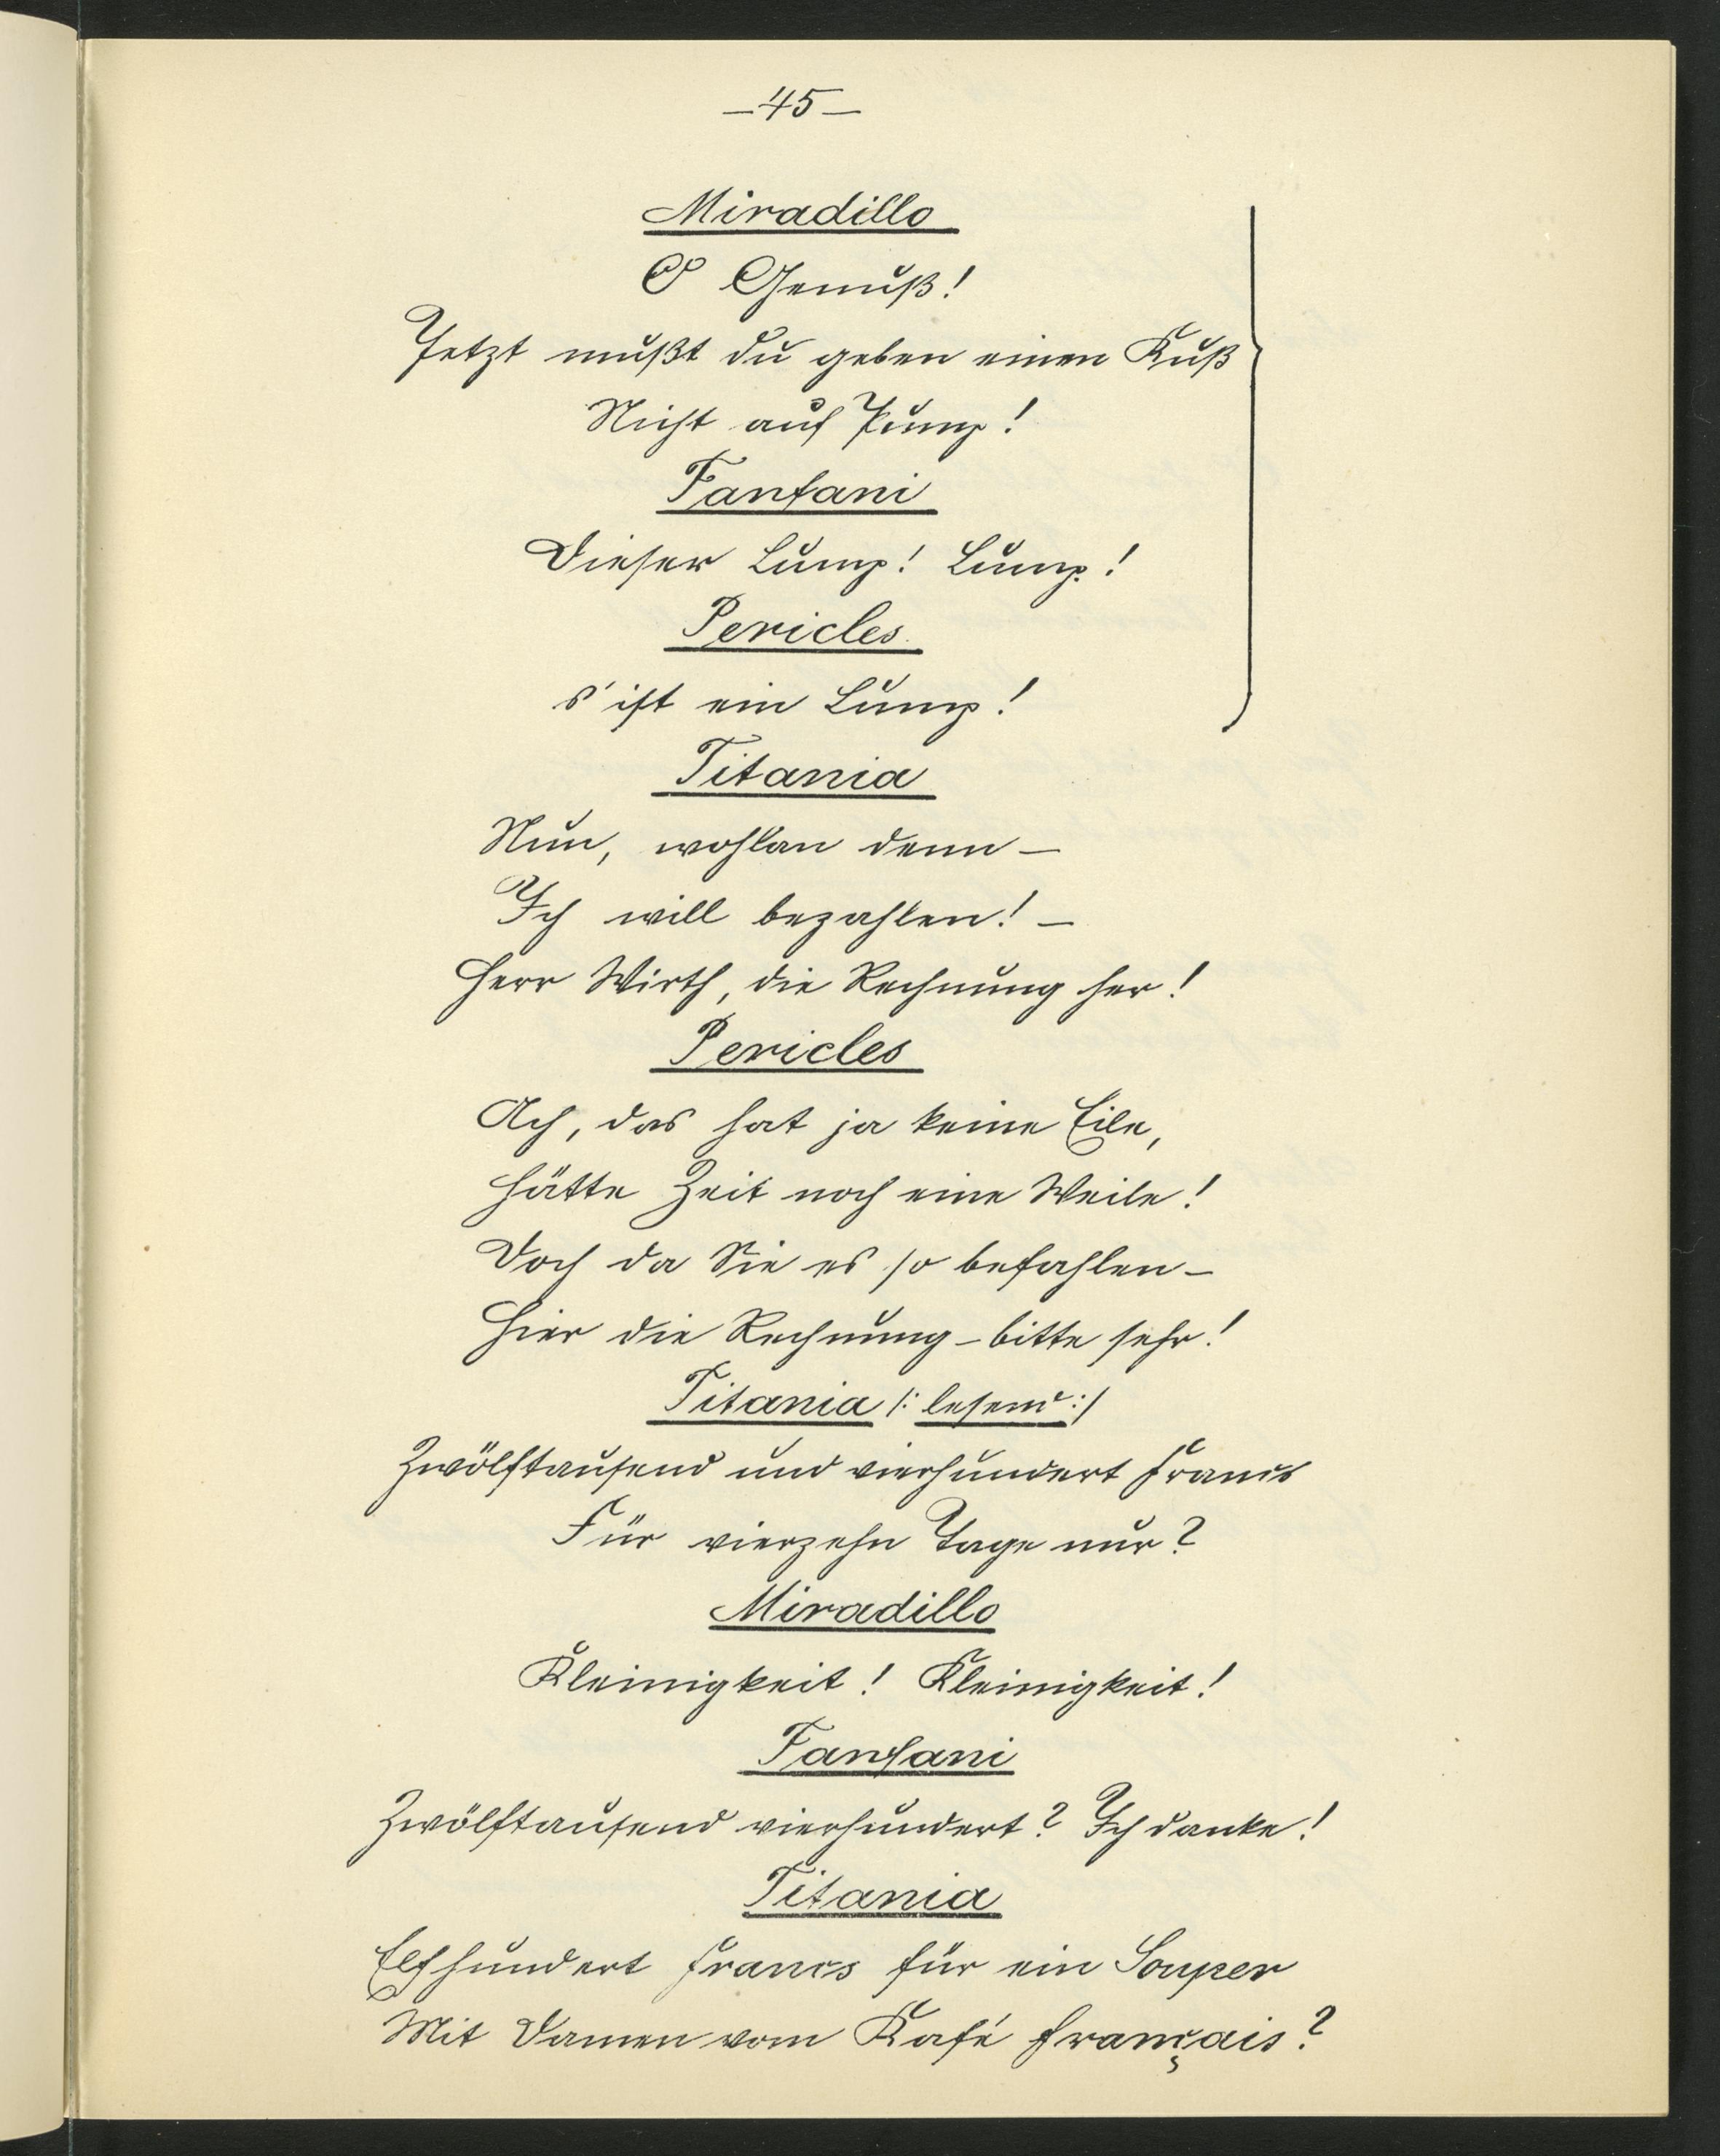 —45—
Miradillo
O Genuß!
Jetzt mußt du geben einen Kuß
Nicht auf Pump!
Fanfani
Dieser Lump! Lump!
Pericles
s' ist ein Lump!
Titania
Nun, wohlan denn —
Ich will bezahlen! —
Herr Wirth, die Rechnung her!
Pericles
Ach, das hat ja keine Eile,
Hätte Zeit noch eine Weile!
Doch da Sie es so befahlen —
Hier die Rechnung — bitte sehr!
Titania /: lesend :/
Zwölftausend und vierhundert Francs
Für vierzehn Tage nur?
Miradillo
Kleinigkeit! Kleinigkeit!
Fanfani
Zwölftausend vierhundert? Ich danke!
Titania
Elfhundert Francs für ein Souper
Mit Damen vom Kafé français?